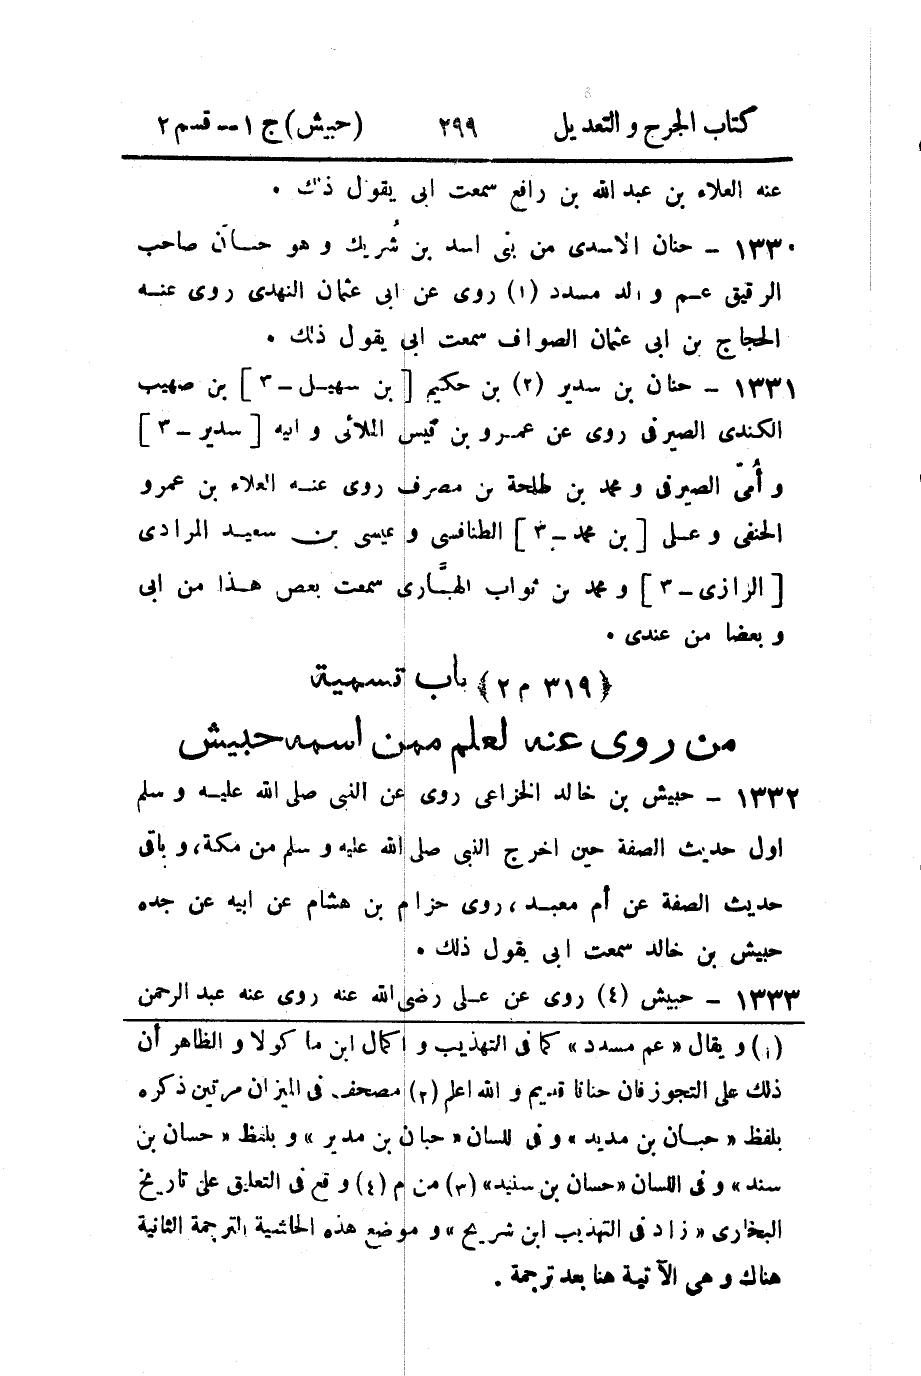 كتاب الجرح و التعديل ٢٩٩ (حبيش) ج ١ -- قسم ٢
عنه العلاء بن عبد الله بن رافع سمعت ابى يقول ذلك .
١٣٣٠ - حنان الاسدى من بنى اسد بن شُريك و هو حسان صاحب
الرقيق عم و الد مسدد (١) روى عن ابى عثمان النهدى روى عنه
الحجاج بن ابى عثمان الصواف سمعت ابى يقول ذلك .
١٣٣١ - حنان بن سدير (٢) بن حكيم [ بن سهيل - ٣ ] بن صهيب
الكندى الصيرفى روى عن عمرو بن قيس الملائى و ابيه [ سدير - ٣ ]
و أُمَىّ الصيرفى و محمد بن طلحة بن مصرف روى عنه العلاء بن عمرو
الحنفى و على [ بن محمد - ٣ ] الطنافسى و عيسى بن سعيد المرادى
[ الرازى - ٣ ] و محمد بن ثواب الهبَّارى سمعت بعض هذا من ابى
و بعضا من عندى .
﴿ ٣١٩ م ٢ ﴾ باب تسمية
من روى عنه لعلم ممن اسمه حبيش
١٣٣٢ - حبيش بن خالد الخزاعى روى عن النبى صلى الله عليه و سلم
اول حديث الصفة حين اخرج النبى صلى الله عليه و سلم من مكة، و باقى
حديث الصفة عن أم معبد ، روى حزام بن هشام عن ابيه عن جده
حبيش بن خالد سمعت ابى يقول ذلك .
١٣٣٣ - حبيش (٤) روى عن على رضى الله عنه روى عنه عبد الرحمن
(١) و يقال « عم مسدد » كما فى التهذيب و اكمال ابن ما كولا و الظاهر أن
ذلك على التجوز فان حنانا قديم و الله اعلم (٢) مصحف فى الميزان مرتين ذكره
بلفظ « حبان بن مديد » و فى للسان « حبان بن مدير » و بلفظ « حسان بن
سند » و فى اللسان «حسان بن سنيد» (٣) من م (٤) و قع فى التعليق على تاريخ
البخارى « زاد فى التهذيب ابن شريح » و موضع هذه الحاشية الترجمة الثانية
هناك و هى الآتية هنا بعد ترجمة .